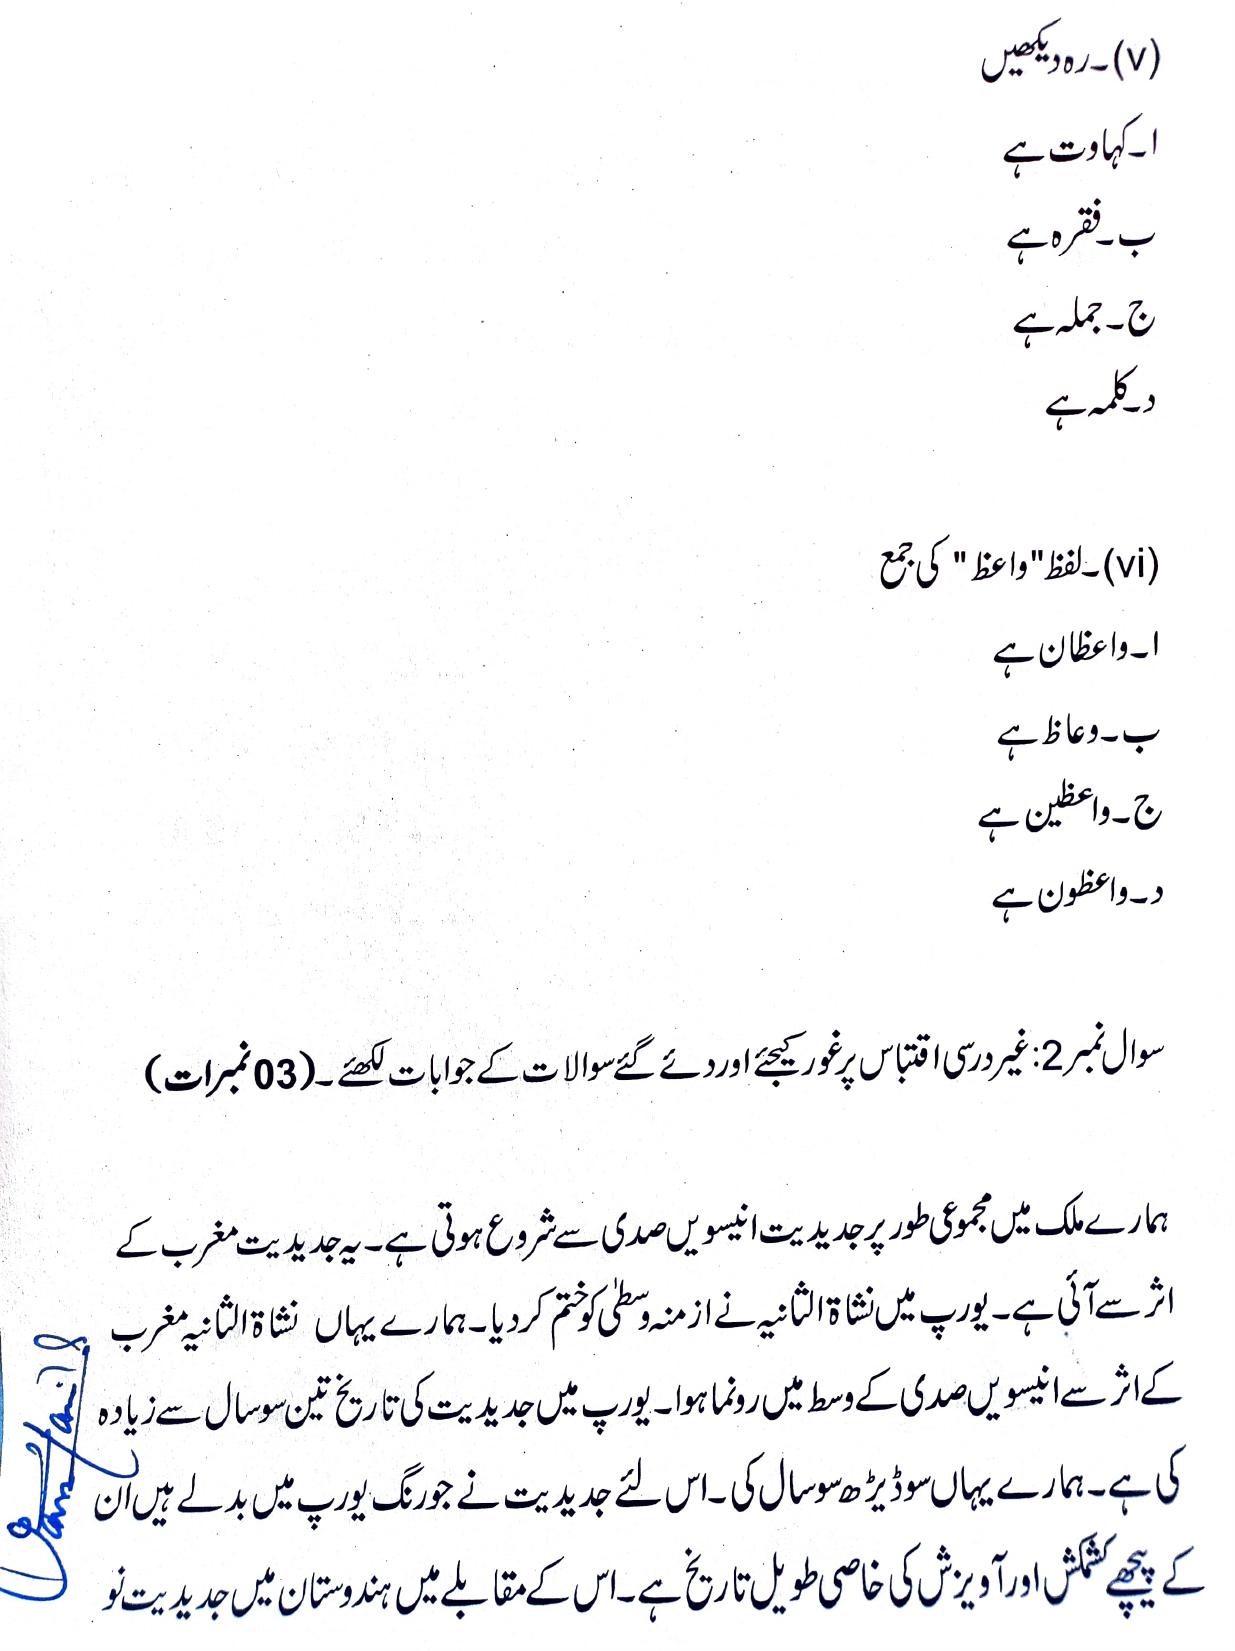 (v)۔رہ دیکھیں
ا۔کہاوت ہے
ب۔فقرہ ہے
ج۔جملہ ہے
د۔کلمہ ہے
(vi)۔لفظ "واعظ" کی جمع
ا۔واعظان ہے
ب۔وعاظ ہے
ج۔واعظین ہے
د۔واعظون ہے
سوال نمبر2:غیر درسی اقتباس پر غور کیجئے اور دئے گئے سوالات کے جوابات لکھئے۔(03 نمبرات)
ہمارے ملک میں مجموعی طور پر جدیدیت انیسویں صدی سے شروع ہوتی ہے۔یہ جدیدیت مغرب کے
اثر سے آئی ہے۔یورپ میں نشاۃ الثانیہ نے ازمنہ وسطیٰ کو ختم کر دیا۔ہمارے یہاں نشاۃ الثانیہ مغرب
کے اثر سے انیسویں صدی کے وسط میں رونما ہوا۔یورپ میں جدیدیت کی تاریخ تین سو سال سے زیادہ
کی ہے۔ہمارے یہاں سو ڈیڑھ سو سال کی۔اس لئے جدیدیت نے جو رنگ یورپ میں بدلے ہیں ان
کے پیچھے کشمکش اور آویزش کی خاصی طویل تاریخ ہے۔اس کے مقابلے میں ہندوستان میں جدیدیت نو